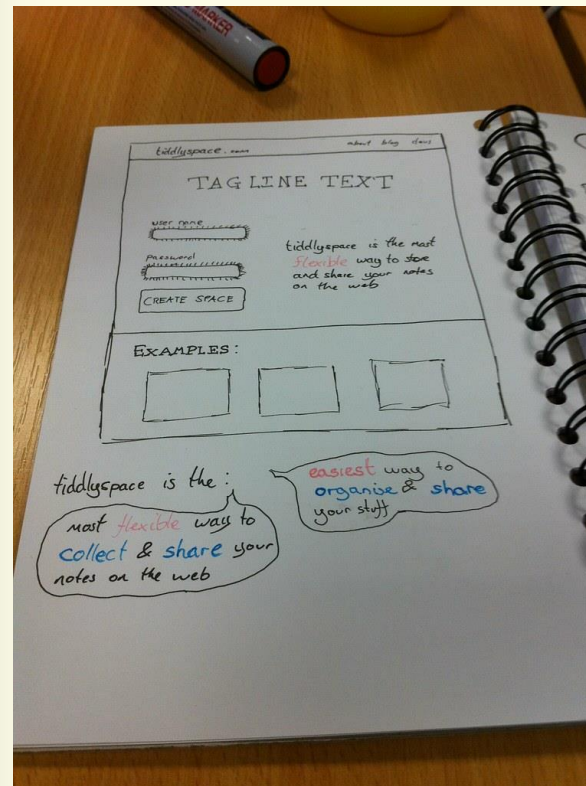 MARKER
tiddlyspace.com
about blog docs
TAG LINE TEXT
user name
password
CREATE SPACE
tiddlyspace is the most
flexible way to store
and share your notes
on the web
EXAMPLES:
tiddlyspace is the:
most flexible way to
collect & share your
notes on the web
easiest way to
organise & share
your stuff